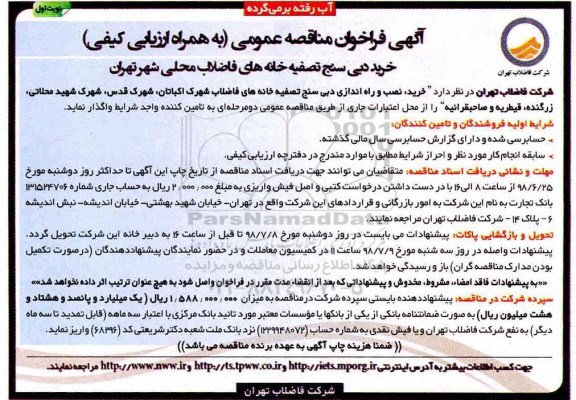 آب رفته برمی‌گرده
نوبت اول
آگهی فراخوان مناقصه عمومی (به همراه ارزیابی کیفی)
خرید دبی سنج تصفیه خانه های فاضلاب محلی شهر تهران
شرکت فاضلاب تهران
شرکت فاضلاب تهران در نظر دارد " خرید، نصب و راه اندازی دبی سنج تصفیه خانه های فاضلاب شهرک اکباتان، شهرک قدس، شهرک شهید محلاتی،
زرگنده، قیطریه و صاحبقرانیه " را از محل اعتبارات جاری از طریق مناقصه عمومی دو مرحله‌ای به تامین کننده واجد شرایط واگذار نماید.
شرایط اولیه فروشندگان و تامین کنندگان:
- حسابرسی شده و دارای گزارش حسابرسی سال مالی گذشته.
- سابقه انجام کار مورد نظر و احراز شرایط مطابق با موارد مندرج در دفترچه ارزیابی کیفی.
مهلت و نشانی دریافت اسناد مناقصه: متقاضیان می توانند جهت دریافت اسناد مناقصه از تاریخ چاپ این آگهی تا حداکثر روز دوشنبه مورخ
۹۸/۶/۲۵ از ساعت ۸ الی ۱۶ با در دست داشتن درخواست کتبی و اصل فیش واریزی به مبلغ ۲/۰۰۰/۰۰۰ ریال به حساب جاری شماره ۱۳۱۵۲۴۷۰۶
بانک تجارت به نام این شرکت به امور بازرگانی و قراردادهای این شرکت واقع در تهران- خیابان شهید بهشتی- خیابان اندیشه- نبش اندیشه
۶ - پلاک ۱۴ - شرکت فاضلاب تهران مراجعه نمایند.
تحویل و بازگشایی پاکات: پیشنهادات می بایست در روز دوشنبه مورخ ۹۸/۷/۸ تا قبل از ساعت ۱۶ به دبیر خانه این شرکت تحویل گردد.
پیشنهادات واصله در روز سه شنبه مورخ ۹۸/۷/۹ ساعت ۱۱ در کمیسیون معاملات و در حضور نمایندگان پیشنهاددهندگان (در صورت تکمیل
بودن مدارک مناقصه گران) باز و رسیدگی خواهد شد.
««به پیشنهادات فاقد امضاء، مشروط، مخدوش و پیشنهاداتی که بعد از انقضاء مدت مقرر در فراخوان واصل شود به هیچ عنوان ترتیب اثر داده نخواهد شد»»
سپرده شرکت در مناقصه: پیشنهاددهنده بایستی سپرده شرکت در مناقصه به میزان ۱/۵۸۸/۰۰۰/۰۰۰ ریال ( یک میلیارد و پانصد و هشتاد و
هشت میلیون ریال) به صورت ضمانتنامه بانکی از یکی از بانکها یا مؤسسات معتبر مورد تائید بانک مرکزی با اعتبار سه ماهه (قابل تمدید تا سه ماه
دیگر) به نفع شرکت فاضلاب تهران و یا فیش نقدی به شماره حساب (۱۲۲۹۹۴۸۰۷۲) نزد بانک ملت شعبه دکتر شریعتی کد (۶۸۳۹۶) واریز نماید.
(( ضمنا هزینه چاپ آگهی به عهده برنده مناقصه می باشد))
جهت کسب اطلاعات بیشتر به آدرس اینترنتی http://iets.mporg.ir و http://ts.tpww.co.ir و http://www.nww.ir مراجعه نمایند.
شرکت فاضلاب تهران
ParsNamadData